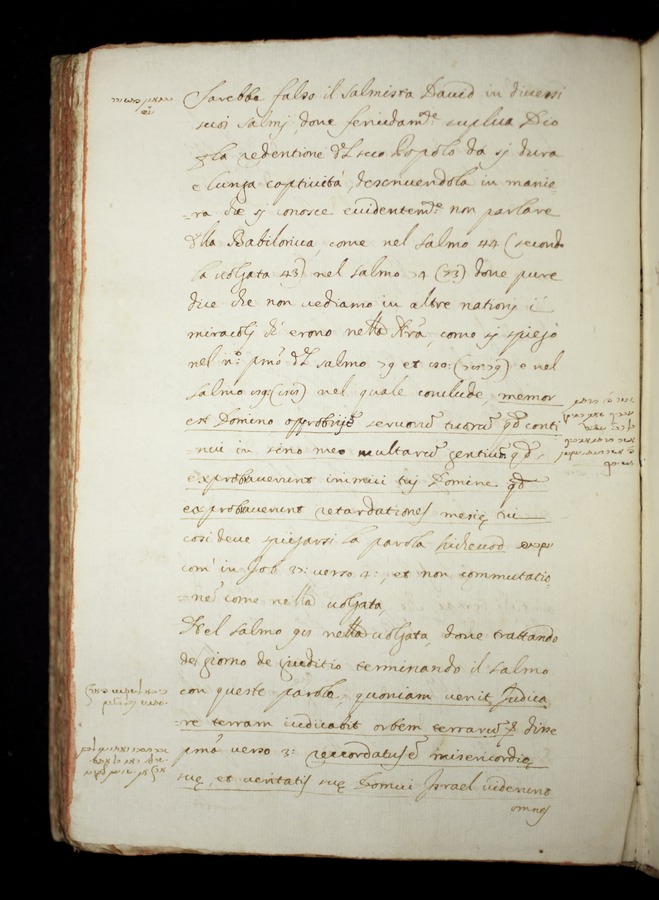 Sarebbe falso il Salmista David in diversi
suoi Salmj, dove feruidam:te suplica Dio
la redentione d'l suo Popolo da sj dura
e lunga captività, descriuendola in manie-
-ra che sj conosce euidentem:te non parlare
d'lla Babilonica, come nel Salmo 44 (secondo
la uolgata 43) nel Salmo 74 (73) doue pure
dice che non uediamo in altre nationj i
miracolj che erono nella Nra, come sj spiegò
nel n:o pmo d'l Salmo 79 et
Salmo nel quale conclude, memor
est Domino opprobrijs seruorũ tuorũ qd conti
-nui in seno meo multarũ gentiũ, qd
exprobauerunt inimici tuj Domine qd
exprobauerunt retardationes mesię tui
cosi deue spiegarsi la parola
com' in Job 37: verso 4:, et non commutatio-
-nes come nella uolgata,
Nel Salmo 98 nella uolgata, doue trattando
del giorno de giuditio terminando il salmo
con queste parole, quoniam uenit Judica-
-re terram iudicabit orbem terrarũ disse
pmo verso 3: reccordatus ẽ misericordię
suę, et ueritatis suę Domui Israel uiderunt
omnes